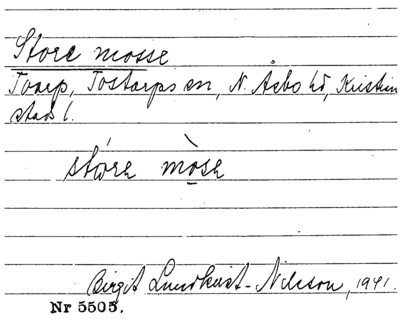 Store mosse
Toarp, Tostarps sn, N. Åsbo hd, Kristian
stads l.
stó̤re mò̲se
Birgit Lundkvist-Nilsson, 1941.
Nr 5505.